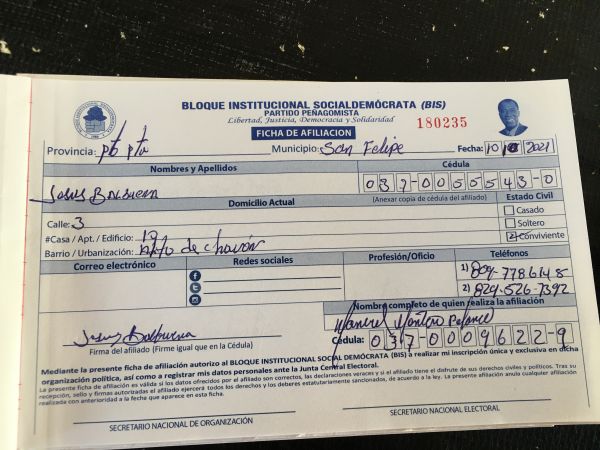 BLOQUE INSTITUCIONAL SOCIALDEMÓCRATA (BIS)
PARTIDO PEÑAGOMISTA
Libertad, Justicia, Democracia y Solidaridad
180235
FICHA DE AFILIACION
Provincia: Pto Pta Municipio: San Felipe Fecha: 10 2021
Nombres y Apellidos Cédula
Jesus Balbuena 037-0055543-0
Domicilio Actual (Anexar copia de cédula del afiliado) Estado Civil
Calle: 3 Casado
#Casa / Apt. / Edificio: 19 Soltero
Barrio / Urbanización: de chavón Conviviente
Correo electrónico Redes sociales Profesión/Oficio Teléfonos
1) 809-7786148
2) 829-526-7392
Nombre completo de quien realiza la afiliación
Manuel
Jesus Balbuena Cédula: 037-0009622-9
Firma del afiliado (Firme igual que en la Cédula)
Mediante la presente ficha de afiliación autorizo al BLOQUE INSTITUCIONAL SOCIAL DEMÓCRATA (BIS) a realizar mi inscripción única y exclusiva en dicha
organización política, así como a registrar mis datos personales ante la Junta Central Electoral.
La presente ficha de afiliación es válida si los datos ofrecidos por el afiliado son correctos, las declaraciones veraces y si el afiliado tiene el disfrute de sus derechos civiles y políticos. Tras su
recepción, sello y firmas autorizadas el afiliado ejercerá todos los derechos y los deberes estatutariamente sancionados, de acuerdo a la ley. La presente afiliación anula cualquier afiliación
realizada con anterioridad a la fecha que aparece en esta ficha.
SECRETARIO NACIONAL DE ORGANIZACIÓN SECRETARIO NACIONAL ELECTORAL